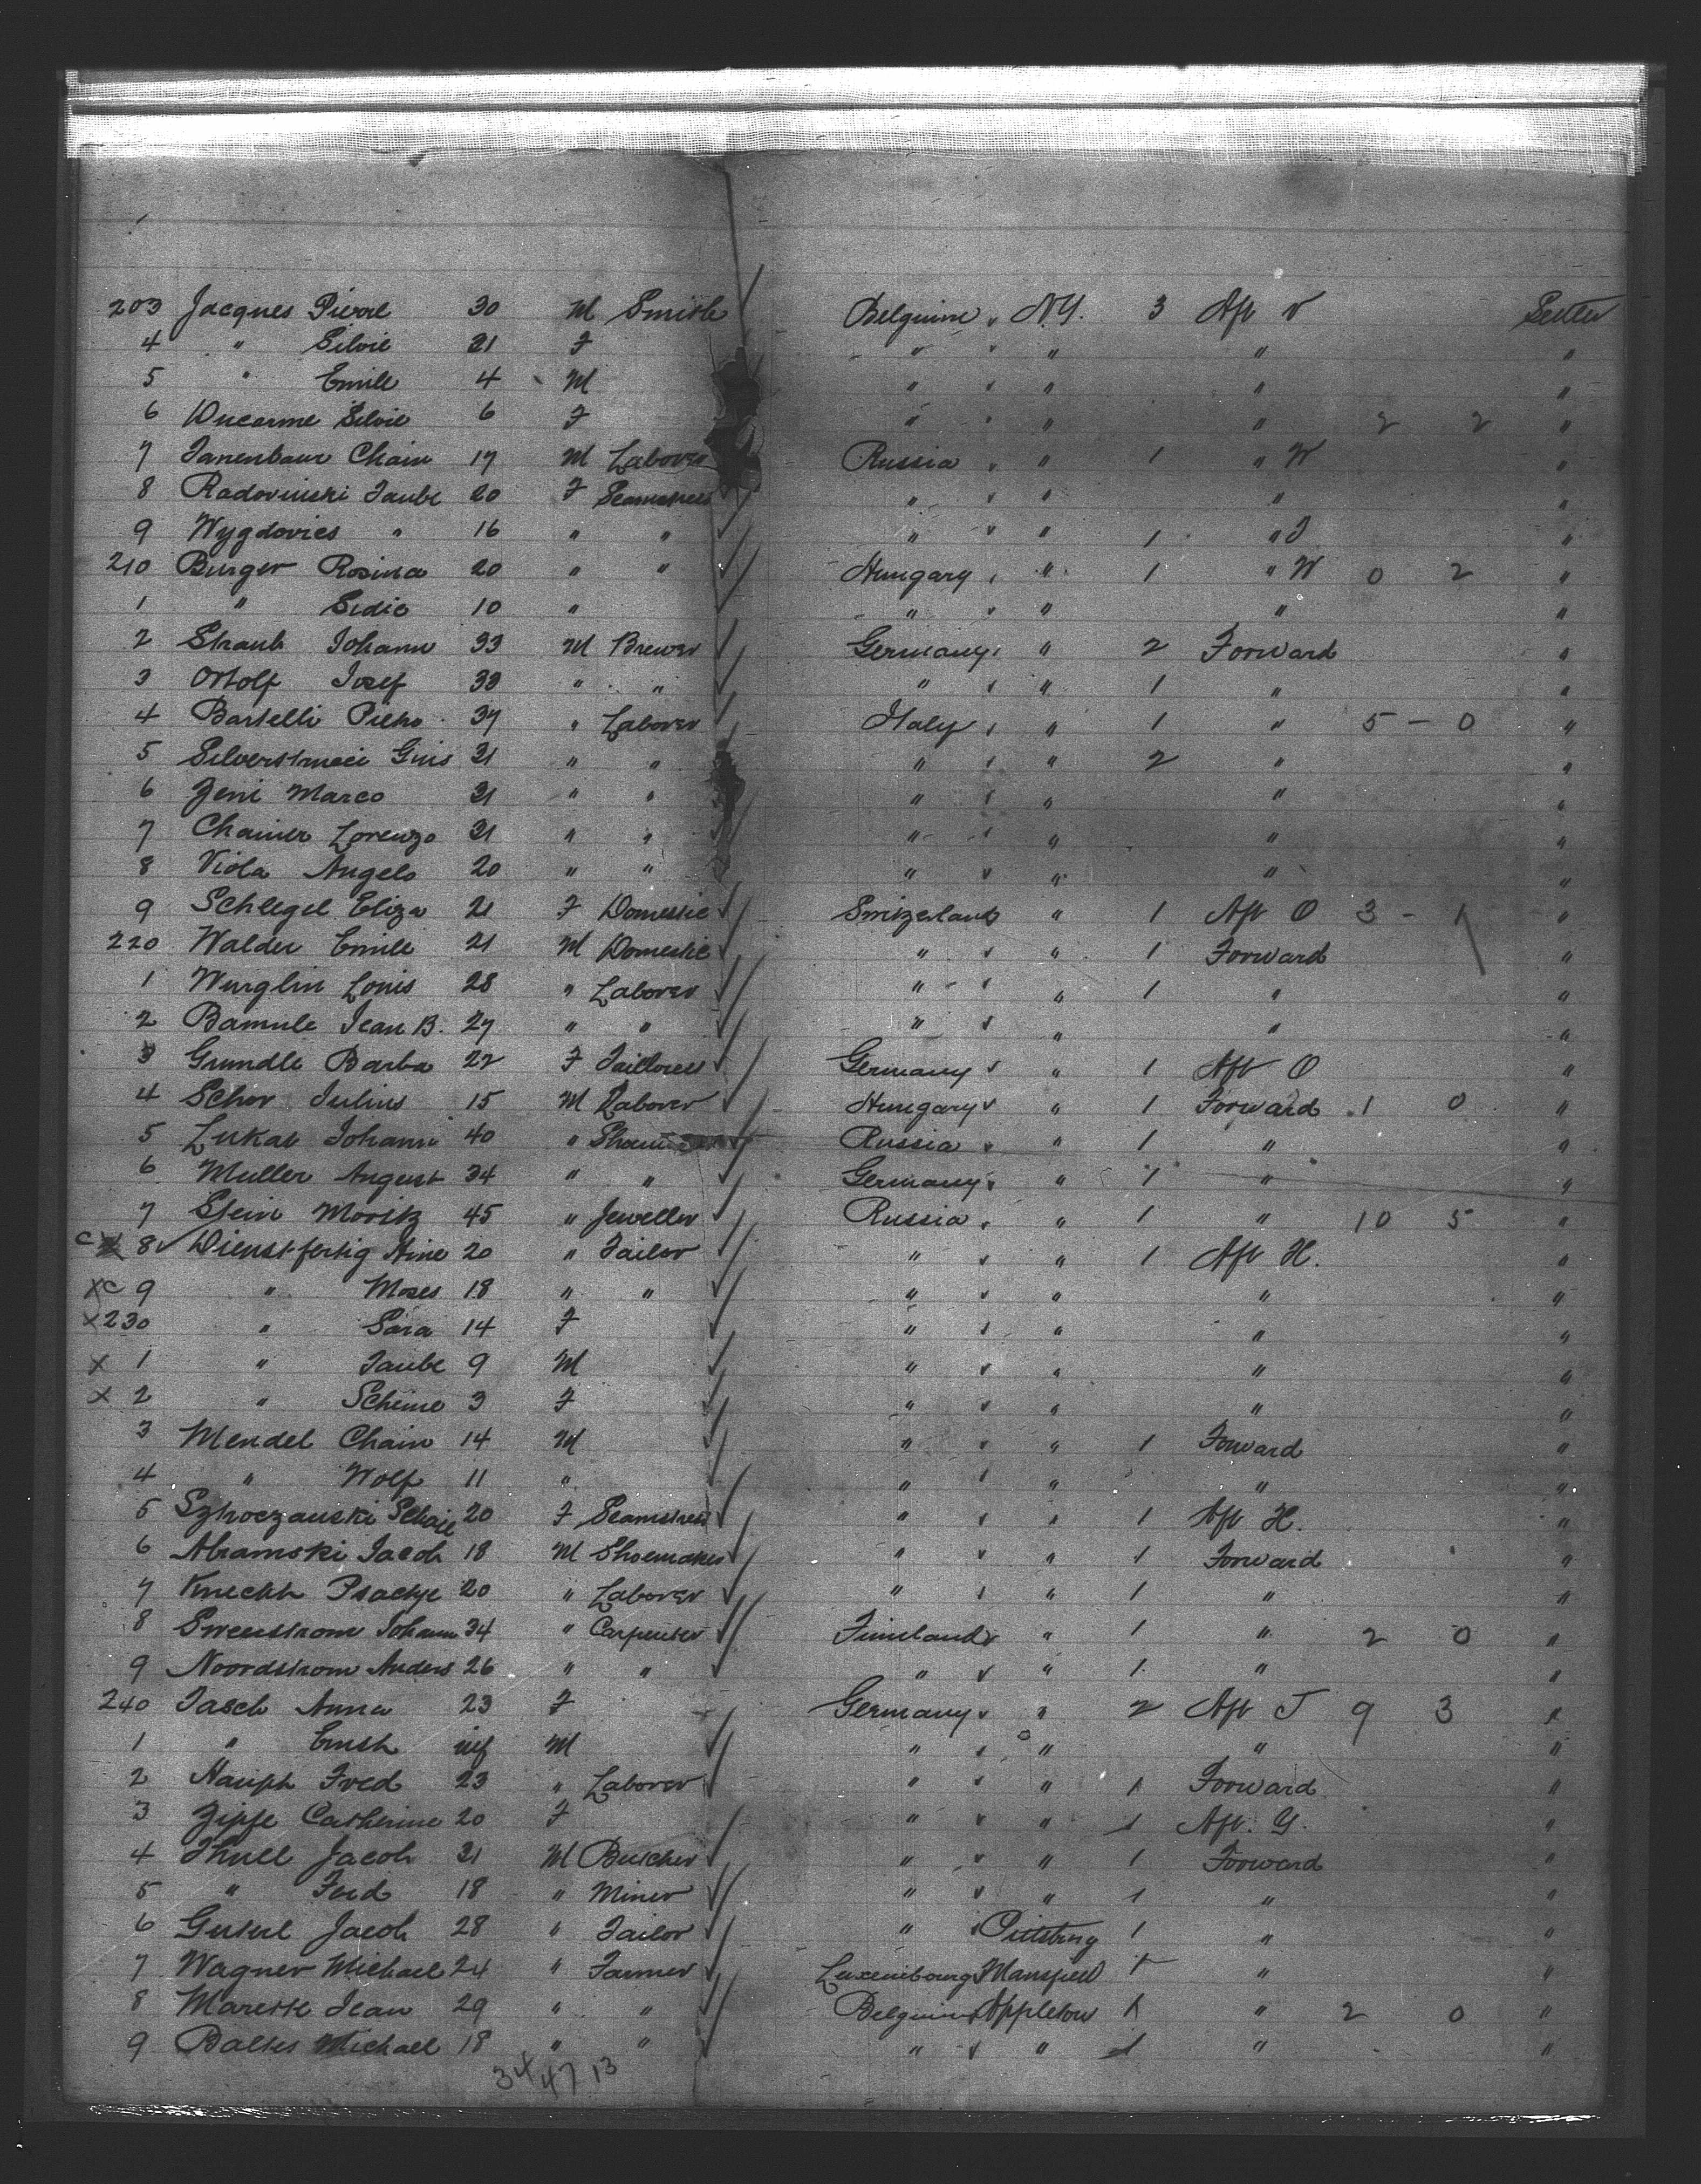 203 Jacques Pierre 30 M Smith Belgium " N.Y. 3 Aft V Settler
4 " Silvie 21 F " " " " "
5 " Emile 4 M " " " " "
6 Ducarme Silvie 6 F " " " " 2 2 "
7 Tanenbaum Chaim 17 M Laborer Russia " " 1 " W "
8 Radovinski Taube 20 F Seamstress " " " " "
9 Wygdovics " 16 " " " " " 1 " J "
210 Burger Rosina 20 " " Hungary " " 1 " W 0 2 "
1 " Sidie 10 " " " " " "
2 Straub Johann 33 M Brewer Germany " " 2 Forward "
3 Ortolf Josef 33 " " " " " 1 " "
4 Bartelli Pietro 37 " Laborer Italy " " 1 " 5 - 0 "
5 Gius 31 " " " " " 2 " "
6 Zeni Marco 31 " " " " " " "
7 Lorenzo 31 " " " " " " "
8 Viola Angelo 20 " " " " " " "
9 Schlegel Eliza 21 F Domestic Switzerland " 1 Aft O 3 - 1 "
220 Walder Emile 21 M Domestic " " " 1 Forward "
1 Wurglin Louis 28 " Laborer " " " 1 " "
2 Bamule Jean B. 27 " " " " " " "
3 Grundle Barba 22 F Tailoress Germany " " 1 Aft O "
4 Schor Julius 15 M Laborer Hungary " " 1 Forward 1 0 "
5 Lukas Johann 40 " Russia " " 1 " "
6 Muller August 34 " " Germany " " 1 " "
7 Stein Moritz 45 " Jeweller Russia " " 1 " 10 5 "
C X 8 Dienstfertig Aine 20 " Tailor " " " 1 Aft H. "
X C 9 " Moses 18 " " " " " " "
X 230 " Sara 14 F " " " " "
X 1 " Taube 9 M " " " " "
X 2 " Scheine 3 F " " " " "
3 Mendel Chaim 14 M " " " 1 Forward "
4 " Wolf 11 " " " " " "
5 20 F Seamstress " " " 1 Aft H. "
6 Abramski Jacob 18 M Shoemaker " " " 1 Forward "
7 Knecht 20 " Laborer " " " 1 " "
8 Sweenstrom Johann 34 " Carpenter Finnland " " 1 " 2 0 "
9 Noordstrom Anders 26 " " " " " 1 " "
240 Jasch Anna 23 F Germany " " 2 Aft J 9 3 "
1 " Ernst inf M " " " " "
2 Haupt Fred 23 " Laborer " " " 1 Forward "
3 Zipfe Catherine 20 F " " " 1 Aft. G. "
4 Thull Jacob 31 M Butcher " " " 1 Forward "
5 " Ferd 18 " Miner " " " 1 " "
6 Jacob 28 " Tailor " " Pittsburg 1 " "
7 Wagner Michael 24 " Farmer Luxembourg Mansfield 1 " "
8 Marette Jean 29 " " Belgium Appleton 1 " 2 0 "
9 Baltes Michael 18 " " " " " 1 " "
34 47 13